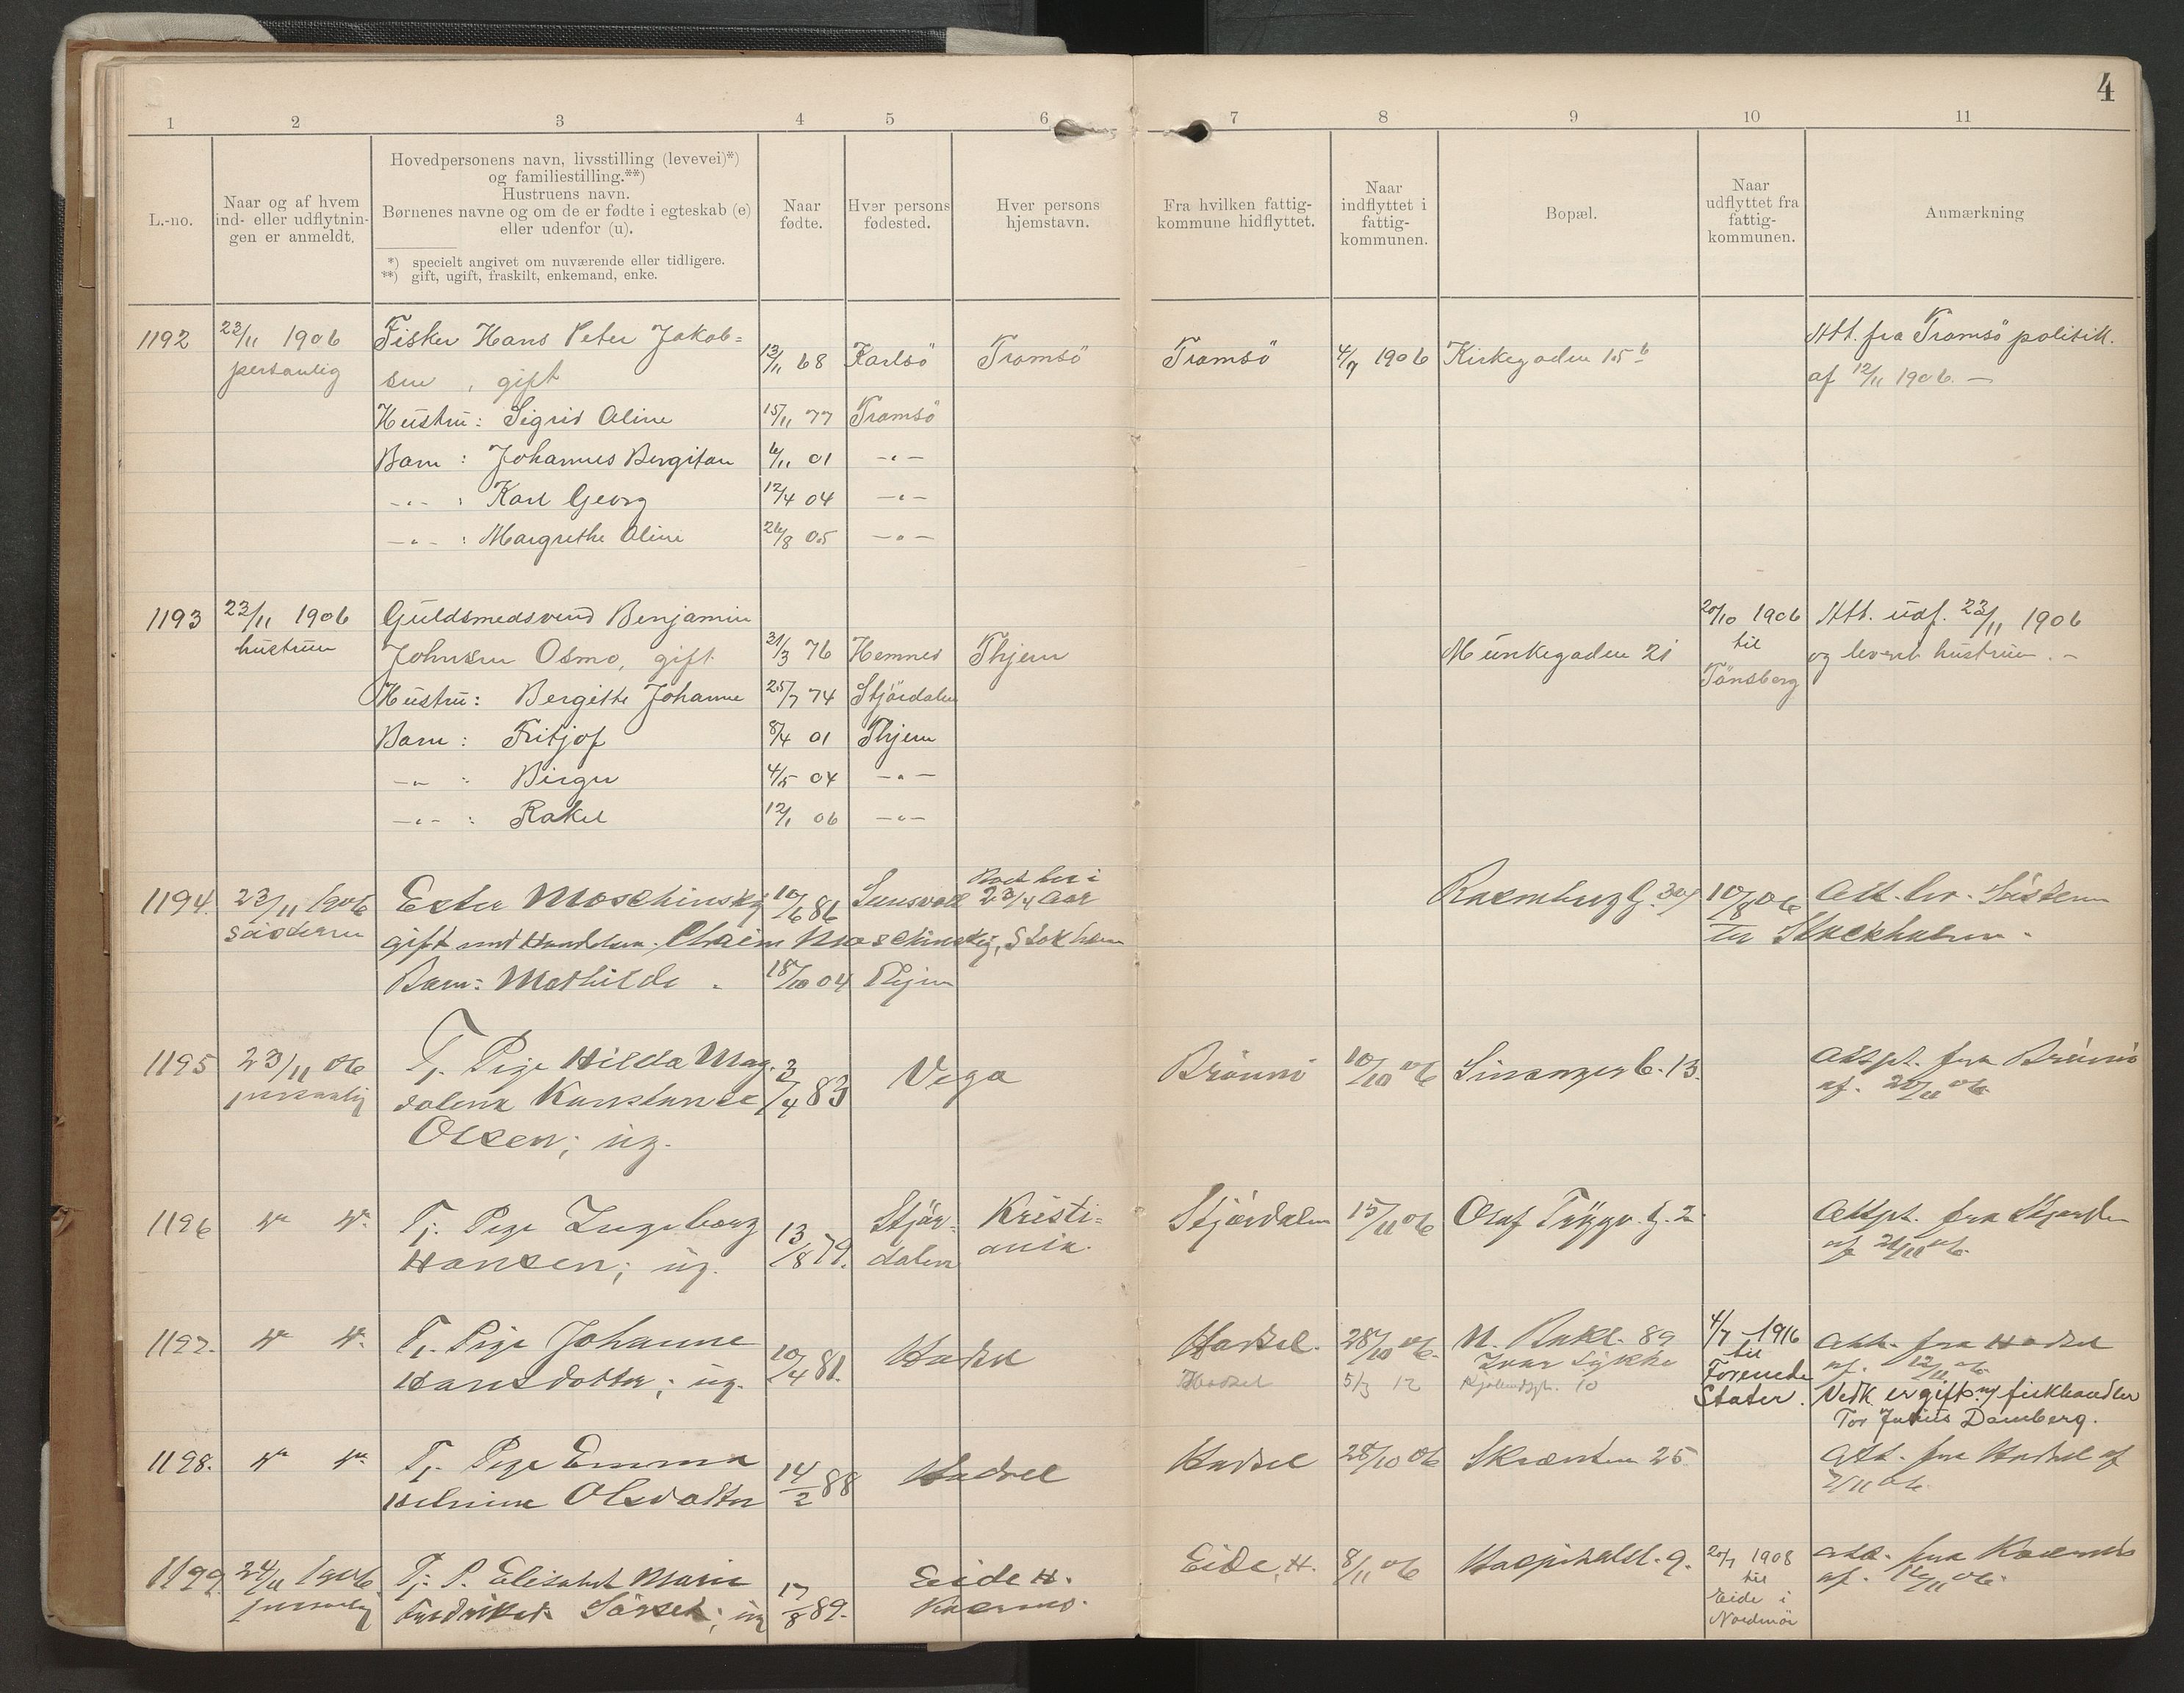 4
1 2 3 4 5 6 7 8 9 10 11
L.-no.
Naar og af hvem
ind- eller udflytnin-
gen er anmeldt.
Hovedpersonens navn, livsstilling (levevei)*)
og familiestilling.**)
Hustruens navn.
Børnenes navne og om de er fødte i egteskab (e)
eller udenfor (u).
*) specielt angivet om nuværende eller tidligere.
**) gift, ugift, fraskilt, enkemand, enke.
Naar
fødte.
Hver persons
fødested.
Hver persons
hjemstavn.
Fra hvilken fattig-
kommune hidflyttet.
Naar
indflyttet i
fattig-
kommunen.
Bopæl.
Naar
udflyttet fra
fattig-
kommunen.
Anmærkning
1192 23/11 1906 Fisker Hans Peter Jakob=
personlig sen, gift 12/11 68 Karlsö Tromsö Tromsö 4/9 1906 Kirkegaden 15 b Att. fra Tromsö politik.
af 12/11 1906. —
Hustru: Sigrid Oline 15/11 77 Tromsö
Barn: Johannes Bergiton 6/11 01 -"-
-"- : Karl Georg 12/4 04 -"-
-"- : Margrethe Oline 26/8 05 -"-
1193 23/11 1906 Guldsmedsvend Benjamin 20/10 1906 Att. udf. 23/11 1906
hustruen Johnsen Osmo, gift 31/3 76 Hemnes Thjem Munkegaden 21 til og levert hustruen. -
Hustru: Bergitte Johanne 25/7 74 Stjördalen Tönsberg
Barn: Fritjof 8/4 01 Thjem
-"- : Birger 4/5 04 -"-
-"- : Rakel 12/1 06 -"-
1194. 23/11 1906 Ester Moschinsky 10/6 86 Sunsvall Boet her i 2 3/4 Aar 10/8 06 Att. lev. Söstern
Söstern gift med Handelsm. Chaim Moschinsky, Stokholm til Stockholm.
Barn: Mathilde. 18/10 04 Thjem
1195 23/11 06 Tj. Pige Hilda Mag- 3/4 83 Vega Brönnö 10/10 06 13. Attest. fra Brönnö
personlig dalena Konstanse af. 20/11 06.
Olsen; ug.
1196 do do. Tj. Pige Ingeborg 13/8 79. Stjör- Kristi= Stjördalen 15/11 06 Olaf Trygv. G. 2 Attest. fra Stjørdalen
Hansen; ug. dalen ania. af 21/11 06.
1197. do do. Tj. Pige Johanne 10/4 81. Hadsel Hadsel. 28/10 06. N. Bakl. 89 4/7 1916 Att. fra Hadsel
Hansdatter; ug. Hadsel 5/3 12 Ivar Lykke 10 til af. 12/11 06.
Forenede Vedk. er gift m/ fiskhandler
Stater. Tor Julius Damberg.
1198. do do. Tj. Pige Emma 14/2 88 Hadsel Hadsel 28/10 06 Skrænten 25 Att. fra Hadsel af
Helmine Olsdatter 7/11 06.
1199 24/11 1906. Tj. P. Elisabet Marie 17/8 89. Eide N. Eide, N. 8/11 06 Hospitalsl. 9. 20/7 1908 Att. fra Kvernes
personlig Fredriksd. ; ug Kvernes. til af. 16/11 06.
Eide i
Nordmör